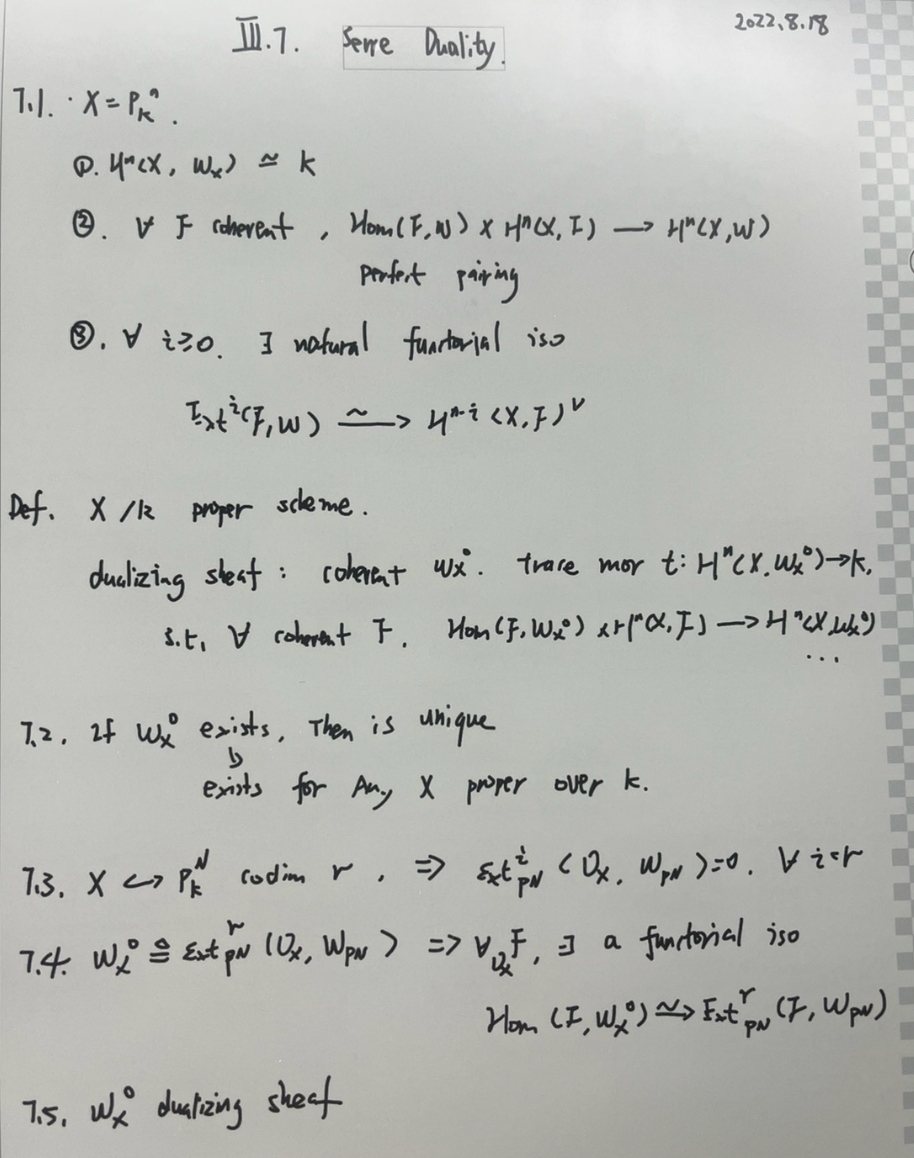 III.7. Serre Duality. 2022.8.18
7.1. · X = P_k^n.
①. H^n(X, ω_X) ≃ k
②. ∀ F coherent, Hom(F, ω) × H^n(X, F) → H^n(X, ω)
perfect pairing
③. ∀ i≥0. ∃ natural functorial iso
Ext^i(F, ω) ⥲ H^{n-i}(X, F)^∨
Def. X/k proper scheme.
dualizing sheaf: coherent ω_X°. trace mor t: H^n(X, ω_X°)→k.
s.t. ∀ coherent F. Hom(F, ω_X°) × H^n(X, F) → H^n(X, ω_X°)
...
7.2. If ω_X° exists, Then is unique
↳
exists for Any X proper over k.
7.3. X ↪ P_k^N codim r, ⇒ Ext^i_{P^N}(O_X, ω_{P^N})=0. ∀ i<r
7.4. ω_X° ≙ Ext^r_{P^N}(O_X, ω_{P^N}) ⇒ ∀ O_X F, ∃ a functorial iso
Hom(F, ω_X°) ⥲ Ext^r_{P^N}(F, ω_{P^N})
7.5. ω_X° dualizing sheaf